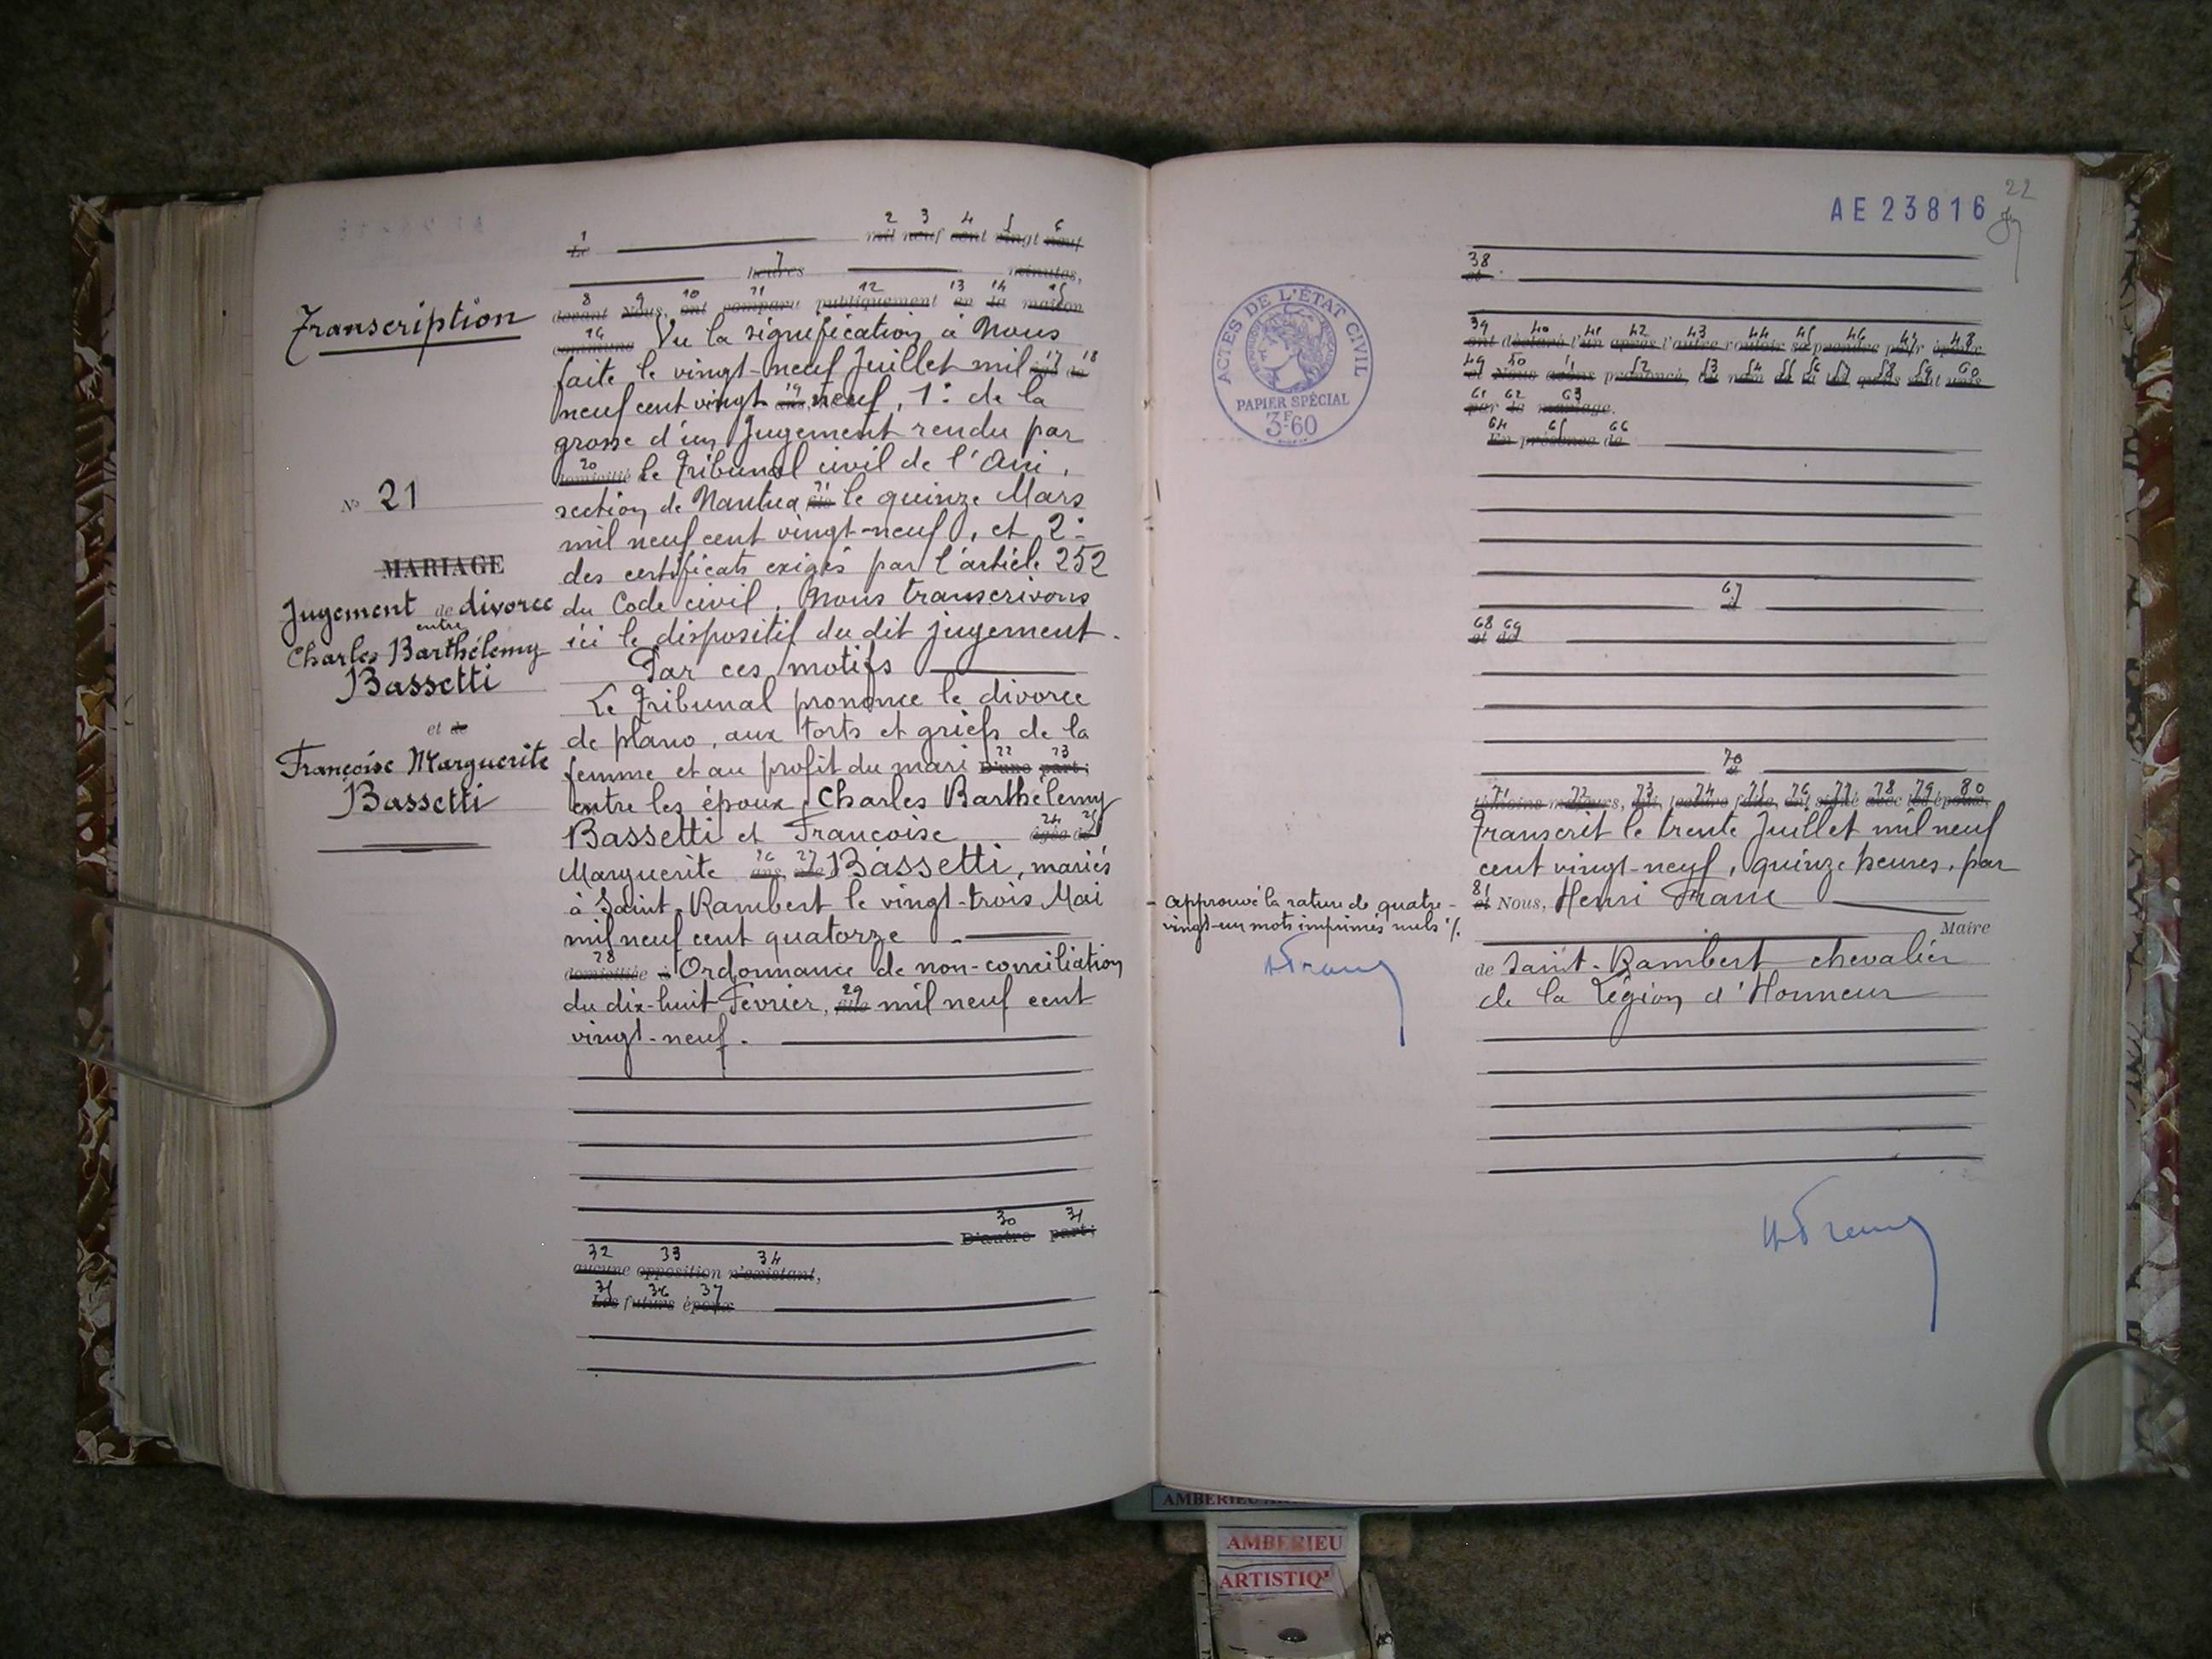 Transcription
N° 21
MARIAGE
Jugement de divorce
entre
Charles Barthélemy
Bassetti
et de
Françoise Marguerite
Bassetti
1 2 3 4 5 6
Le mil neuf cent vingt neuf
7
heures minutes,
8 9 10 11 12 13 14 15
devant Nous, ont comparu publiquement en la maison
16
commune Vu la signification à Nous
faite le vingt-neuf Juillet mil 17 18
neuf cent vingt 19 neuf, 1° de la
grosse d'un Jugement rendu par
20
domicilié le Tribunal civil de l'Ain,
section de Nantua 21 le quinze Mars
mil neuf cent vingt-neuf, et 2°
des certificats exigés par l'article 252
du Code civil, Nous transcrivons
ici le dispositif du dit jugement.
Par ces motifs
Le Tribunal prononce le divorce
de plano, aux torts et griefs de la
22 23
femme et au profit du mari D'une part;
entre les époux, Charles Barthélemy
24 25
Bassetti et Françoise âgée de
26 27
Marguerite ans, Bassetti, mariés
à Saint-Rambert le vingt-trois Mai
mil neuf cent quatorze
28
domiciliée à Ordonnance de non-conciliation
29
du dix-huit Février, mil neuf cent
vingt-neuf.
30 31
D'autre part;
32 33 34
aucune opposition n'existant,
35 36 37
Les futurs époux
AE23816
22
ACTES DE L'ÉTAT CIVIL
PAPIER SPÉCIAL
3F60
38
et
39 40 41 42 43 44 45 46 47 48
ont déclaré l'un après l'autre vouloir se prendre pour époux
49 50 51 52 53 54 55 56 57 58 59 60
et Nous avons prononcé, au nom de la loi, qu'ils sont unis
61 62 63
par le mariage.
64 65 66
En présence de
67
68 69
et de
70
71 72 73 74 75 76 77 78 79 80
témoins majeurs, qui, lecture faite, ont signé avec les époux.
Transcrit le trente Juillet mil neuf
cent vingt-neuf, quinze heures, par
81
et Nous, Henri Franc
Maire
de Saint-Rambert chevalier
de la Légion d'Honneur
Approuvé la rature de quatre-
vingt-un mots imprimés nuls %.
HFranc
HFranc
AMBERIEU
AMBERIEU
ARTISTIQ